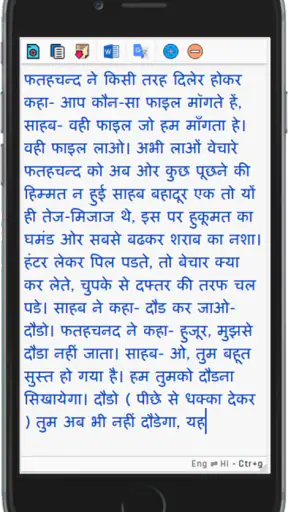 फतहचन्द ने किसी तरह दिलेर होकर
कहा- आप कौन-सा फाइल मॉगते हें,
साहब- वही फाइल जो हम माँगता हे।
वही फाइल लाओ। अभी लाओं वेचारे
फतहचन्द को अब ओर कुछ पूछने की
हिम्मत न हुई साहब बहादूर एक तो यों
ही तेज-मिजाज थे, इस पर हुकूमत का
घमंड ओर सबसे बढकर शराब का नशा।
हंटर लेकर पिल पडते, तो बेचार क्या
कर लेते, चुपके से दफ्तर की तरफ चल
पडे। साहब ने कहा- दौड कर जाओ-
दौडो। फतहचनद ने कहा- हुजूर, मुझसे
दौडा नहीं जाता। साहब- ओ, तुम बहूत
सुस्त हो गया है। हम तुमको दौडना
सिखायेगा। दौडो ( पीछे से धक्का देकर
) तुम अब भी नहीं दौडेगा, यह
Eng ⇌ HI - Ctr+g